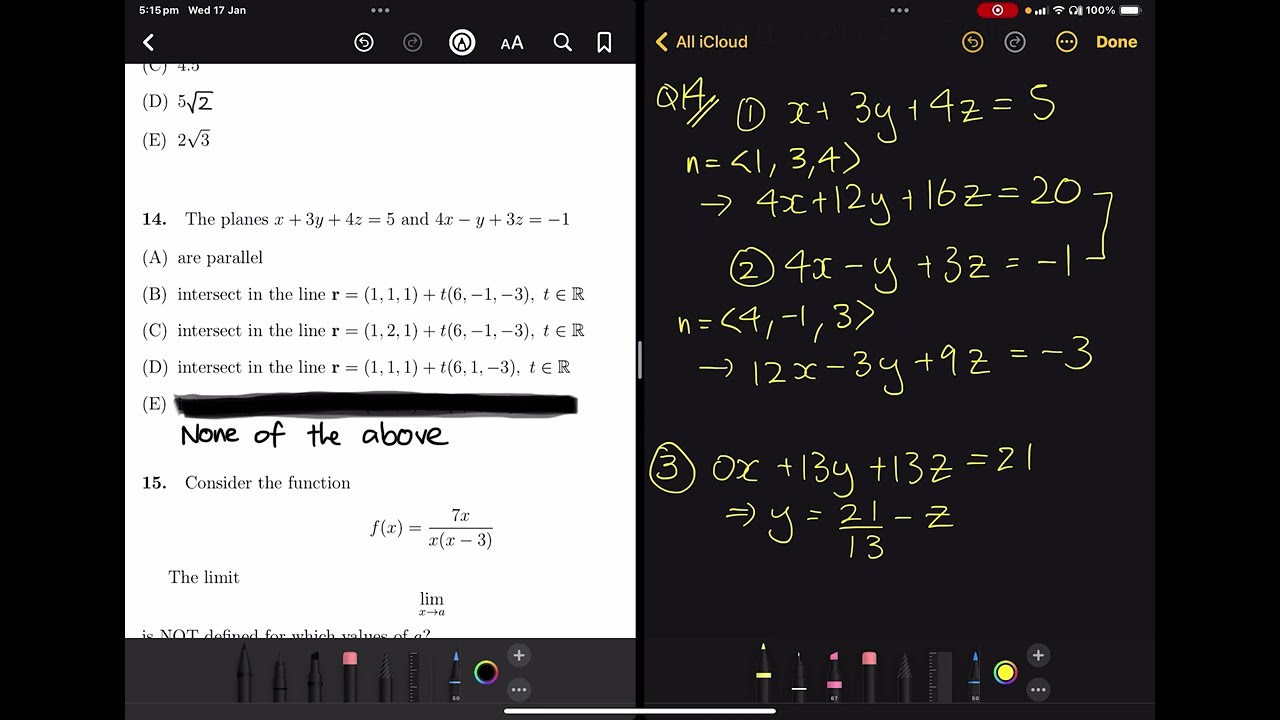 5:15pm Wed 17 Jan
100%
AA
All iCloud
Done
(C) 4.5
(D) 5√2
(E) 2√3
14. The planes x + 3y + 4z = 5 and 4x − y + 3z = −1
(A) are parallel
(B) intersect in the line r = (1, 1, 1) + t(6, −1, −3), t ∈ ℝ
(C) intersect in the line r = (1, 2, 1) + t(6, −1, −3), t ∈ ℝ
(D) intersect in the line r = (1, 1, 1) + t(6, 1, −3), t ∈ ℝ
(E)
None of the above
15. Consider the function
f(x) = 7x / x(x − 3)
The limit
lim x→a
is NOT defined for which values of a?
Q14 ① x + 3y + 4z = 5
n = <1, 3, 4>
→ 4x + 12y + 16z = 20
② 4x − y + 3z = −1
n = <4, −1, 3>
→ 12x − 3y + 9z = −3
③ 0x + 13y + 13z = 21
⇒ y = 21/13 − z
50
67
50